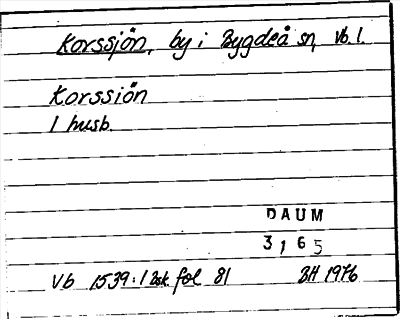 Korssjön, by i Bygdeå sn, Vb. l.
Korssiön
1 husb.
DAUM
3165
Vb 1539:1 Bsk fol 81 BH 1976